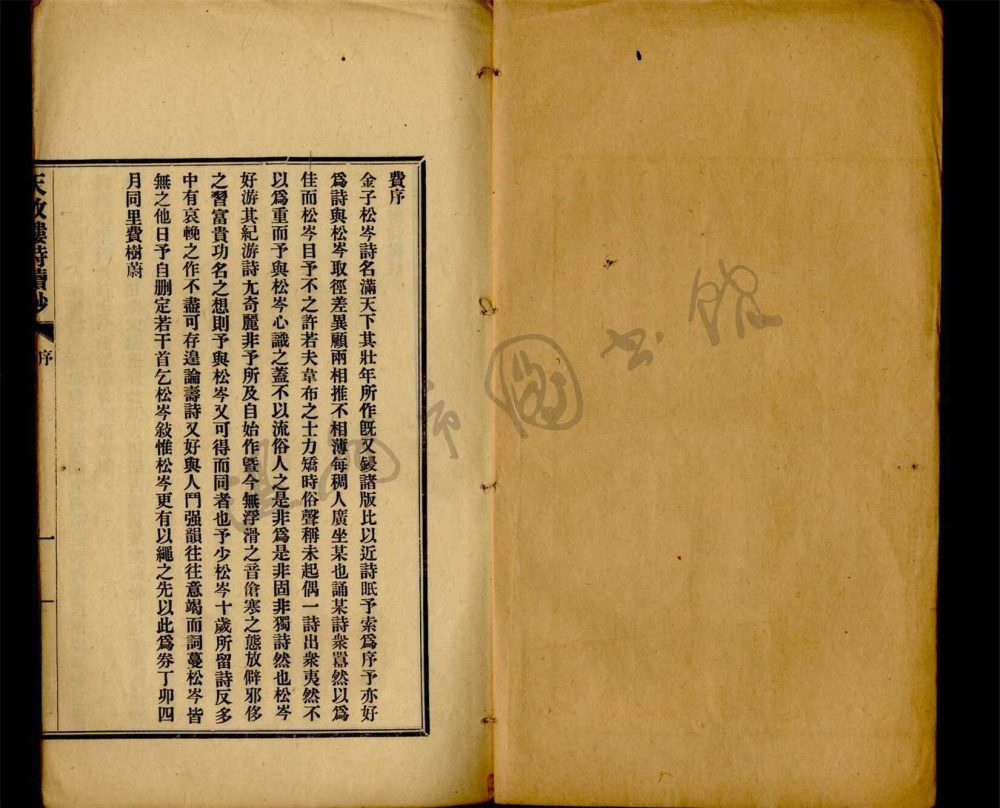 費序
金子松岑詩名滿天下其壯年所作旣又鋟諸版比以近詩眂予索爲序予亦好
爲詩與松岑取徑差異顧兩相推不相薄每稠人廣坐某也誦某詩衆囂然以爲
佳而松岑目予不之許若夫韋布之士力矯時俗聲稱未起偶一詩出衆夷然不
以爲重而予與松岑心識之蓋不以流俗人之是非爲是非固非獨詩然也松岑
好游其紀游詩尤奇麗非予所及自始作曁今無浮滑之音傖寒之態放僻邪侈
之習富貴功名之想則予與松岑又可得而同者也予少松岑十歲所留詩反多
中有哀輓之作不盡可存遑論壽詩又好與人鬥强韻往往意竭而詞蔓松岑皆
無之他日予自删定若干首乞松岑敍惟松岑更有以繩之先以此爲券丁卯四
月同里費樹蔚
天放樓詩續鈔
序
一
市圖书館